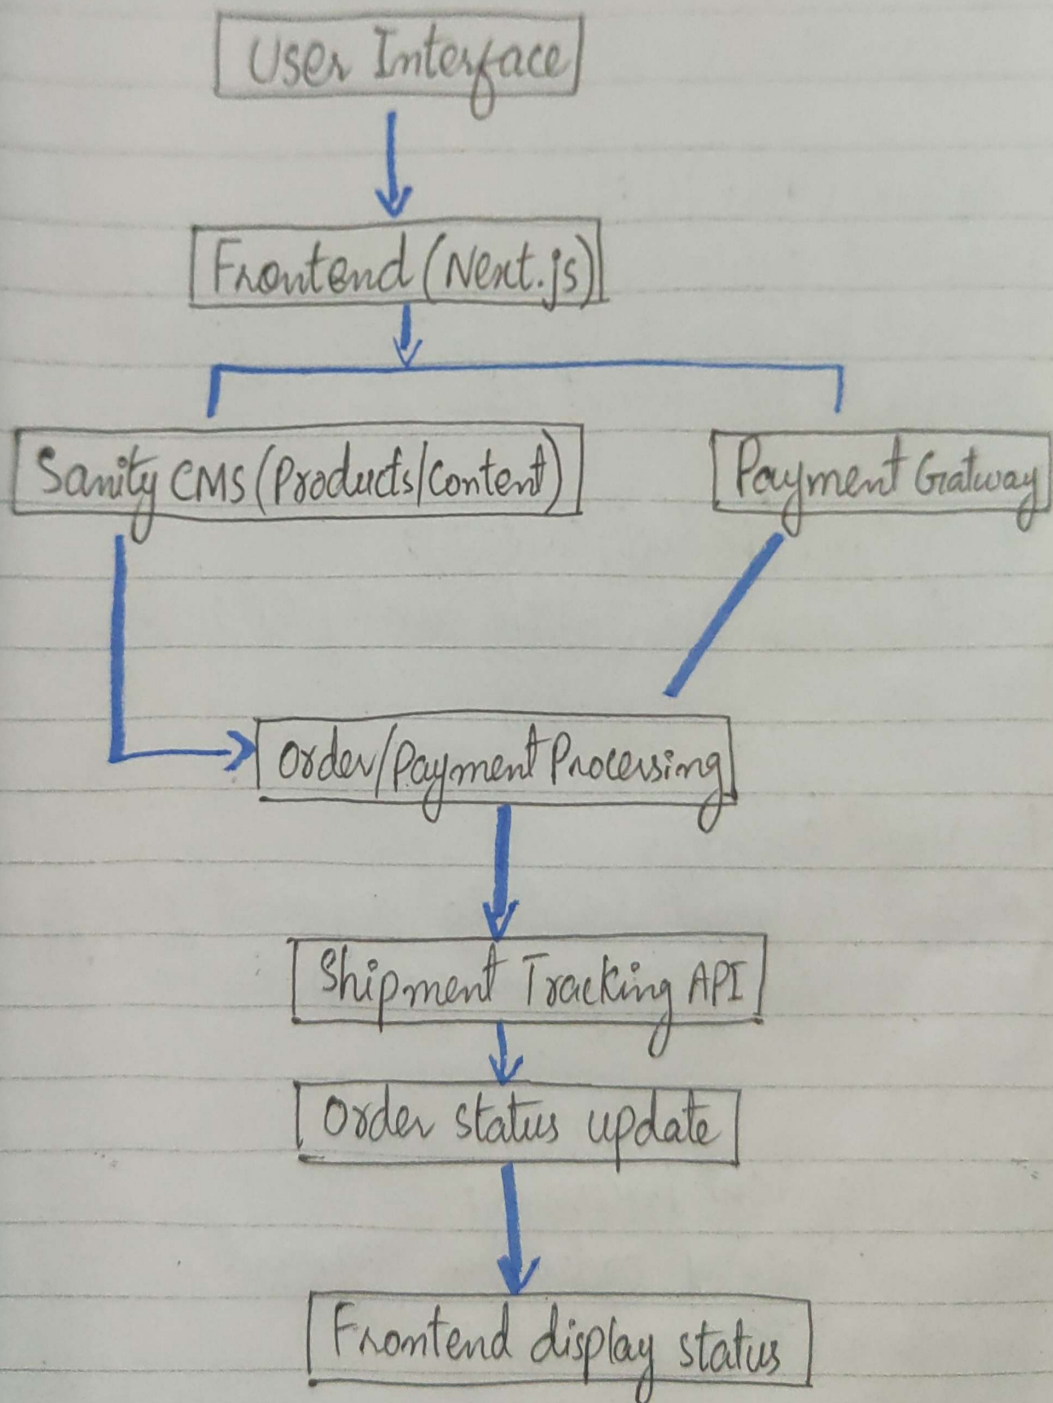 User Interface
Frontend (Next.js)
Sanity CMS (Products/Content)
Payment Gatway
Order/Payment Processing
Shipment Tracking API
Order status update
Frontend display status